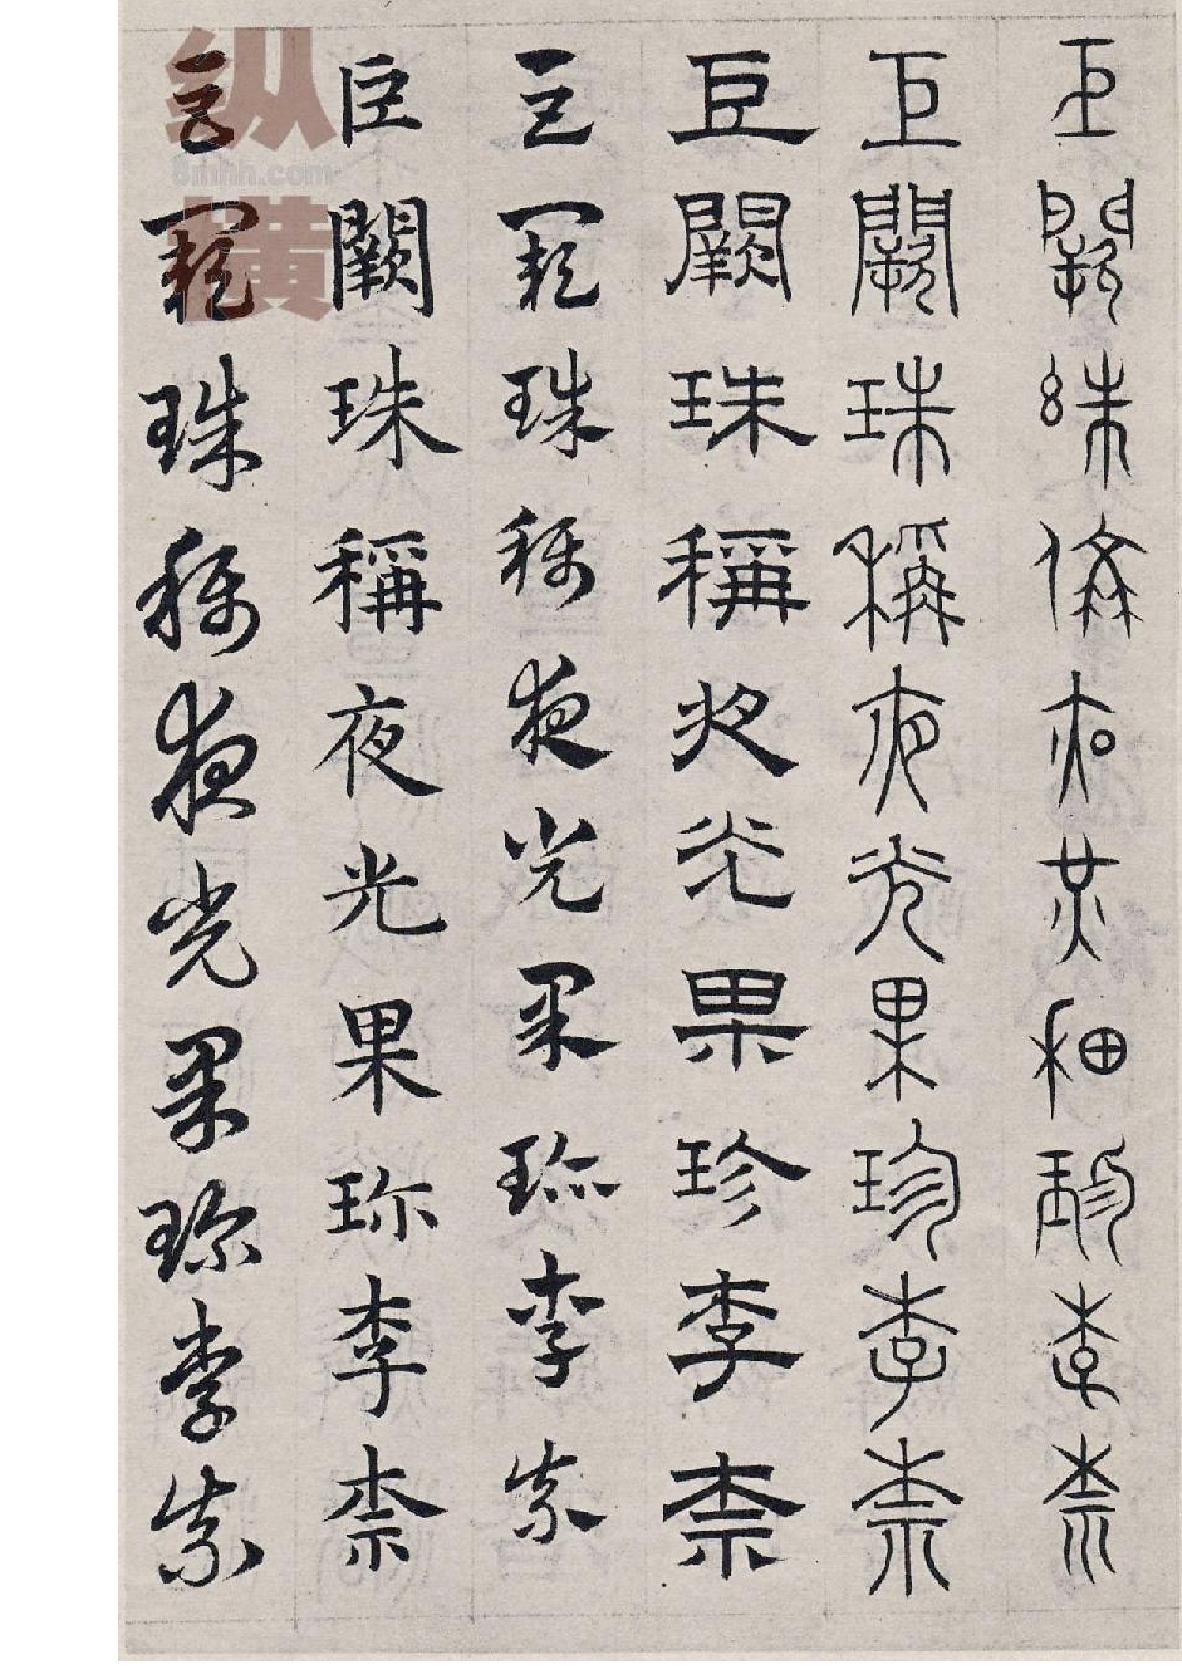 巨闕珠稱夜光果珍李柰
巨闕珠稱夜光果珍李柰
巨闕珠稱夜光果珍李柰
巨闕珠稱夜光果珎李柰
巨闕珠稱夜光果珎李柰
巨闕珠稱夜光果珎李柰
纵横
8mhh.com